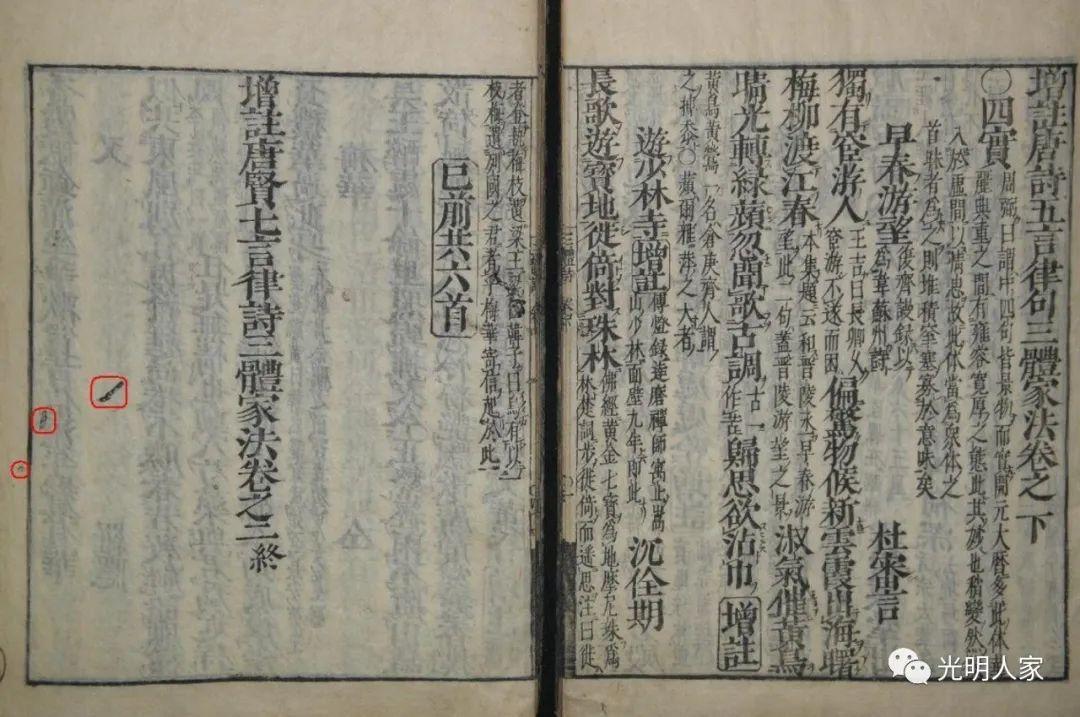 增註唐詩五言律句三體家法卷之下
〇四實 周弼曰謂中四句皆景物而實開元大曆多此休華
麗典重之間有雍容寬厚之態此其玅也稍變然後
入於虛間以情思故此体當為衆体之
首昧者為之則堆積窒塞寡於意味矣
早春游望 復齋謾録以爲韋蘇州詩 杜審言
獨有宦游人 王吉曰長卿久宦游不遂而因 偏驚物候新雲霞出海曙
梅柳渡江春 本集題云和晉陵丞早春游望此二句蓋晉陵游望之景 淑氣催黃鳥
晴光轉緑蘋忽聞歌古調 古一作苦 歸思欲沾巾 增註
黃鳥黃鸎一名倉庚齊人謂之摶黍〇蘋爾雅萍之大者
遊少林寺 增註 傳燈録達磨禪師寓止嵩山少林面壁九年即此 沉佺期
長歌遊寳地徙倚對珠林 佛經黃金七寳為地摩尼珠爲林楚詞步徙倚而遥思注曰徙
者奉執梅枝遺梁王 曰烏有以一
枝梅遺列國之君者乎梅華寄信起於此
已前共六首
增註唐賢七言律詩三體家法卷之二終
光明人家